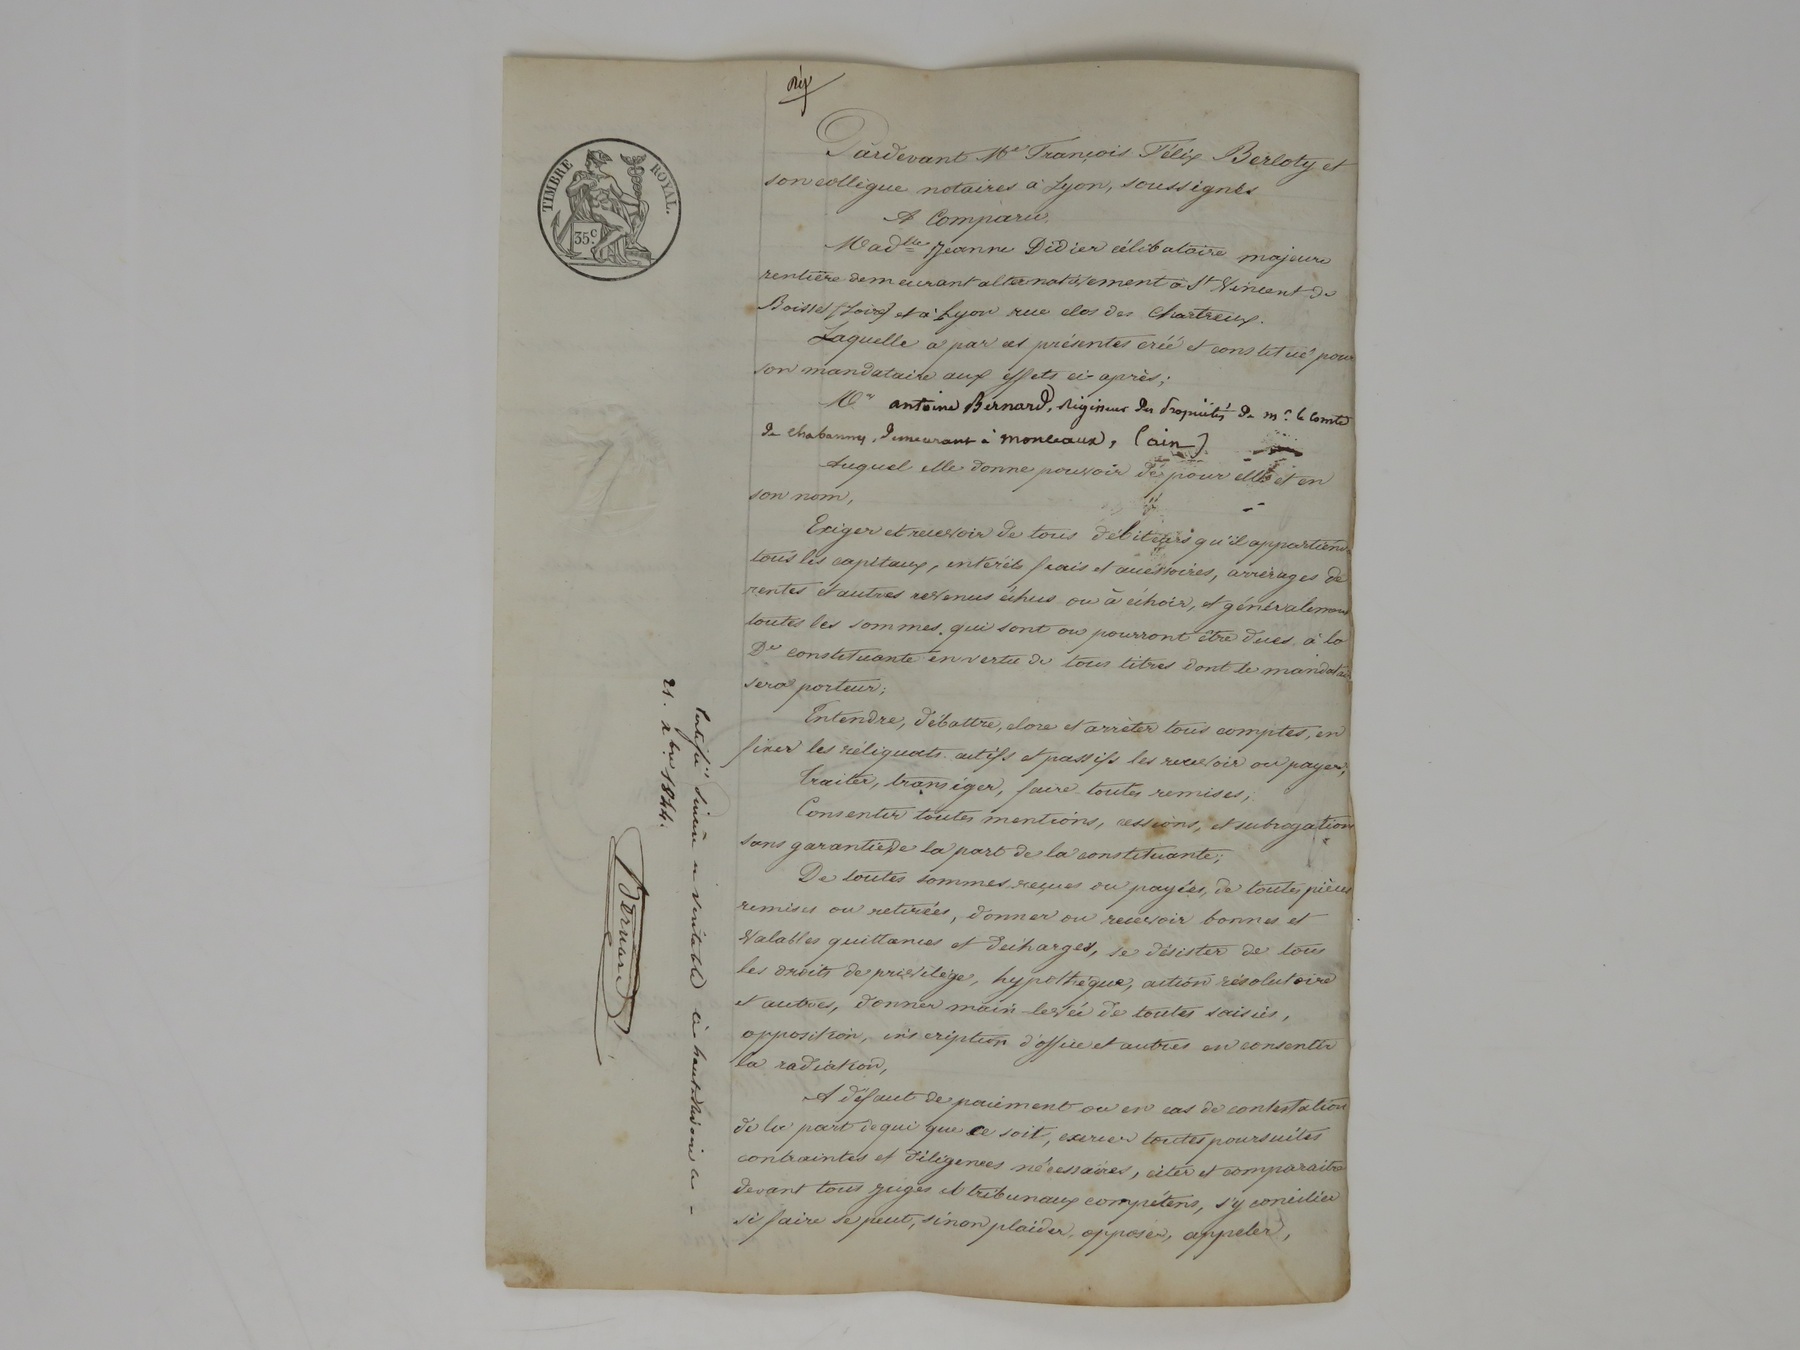 TIMBRE ROYAL.
35 c.
Pardevant Me François Félix Berloty et
son collègue notaires à Lyon, soussignés
A Comparu
Madlle Jeanne Didier célibataire majeure
rentière demeurant alternativement à St Vincent de
Boisset (Loire) et à Lyon rue clos des Chartreux.
Laquelle a par ces présentes créé et constitué pour
son mandataire aux effets ci-après;
Mr antoine Bernard, régisseur des propriétés de mr le comte
de chabannes, demeurant à monceaux, (ain)
Auquel elle donne pouvoir de pour elle et en
son nom,
Exiger et recevoir de tous débiteurs qu'il appartiendra
tous les capitaux, intérêts frais et accessoires, arrérages de
rentes et autres revenus échus ou à échoir, et généralement
toutes les sommes qui sont ou pourront être dues à la
De constituante en vertu de tous titres dont le mandatai
sera porteur;
Entendre, débattre, clore et arrêter tous comptes, en
fixer les réliquats actifs et passifs les recevoir ou payer;
Traiter, transiger, faire toutes remises;
Consentir toutes mentions, cessions, et subrogations
sans garantie de la part de la constituante;
De toutes sommes reçues ou payées, de toutes pièces
remises ou retirées, donner ou recevoir bonnes et
valables quittances et décharges, se désister de tous
les droits de privilège, hypothèque, action résolutoire
et autres, donner main-levée de toutes saisies,
opposition, inscription d'office et autres en consentir
la radiation,
A défaut de paiement ou en cas de contestation
de la part de qui que ce soit, exercer toutes poursuites
contraintes et diligences nécessaires, citer et comparaitre
devant tous juges et tribunaux compétens, s'y concilier
si faire se peut, sinon plaider, opposer, appeler,
Certifié sincère et véritable
21. Xbre 1844.
Bernard